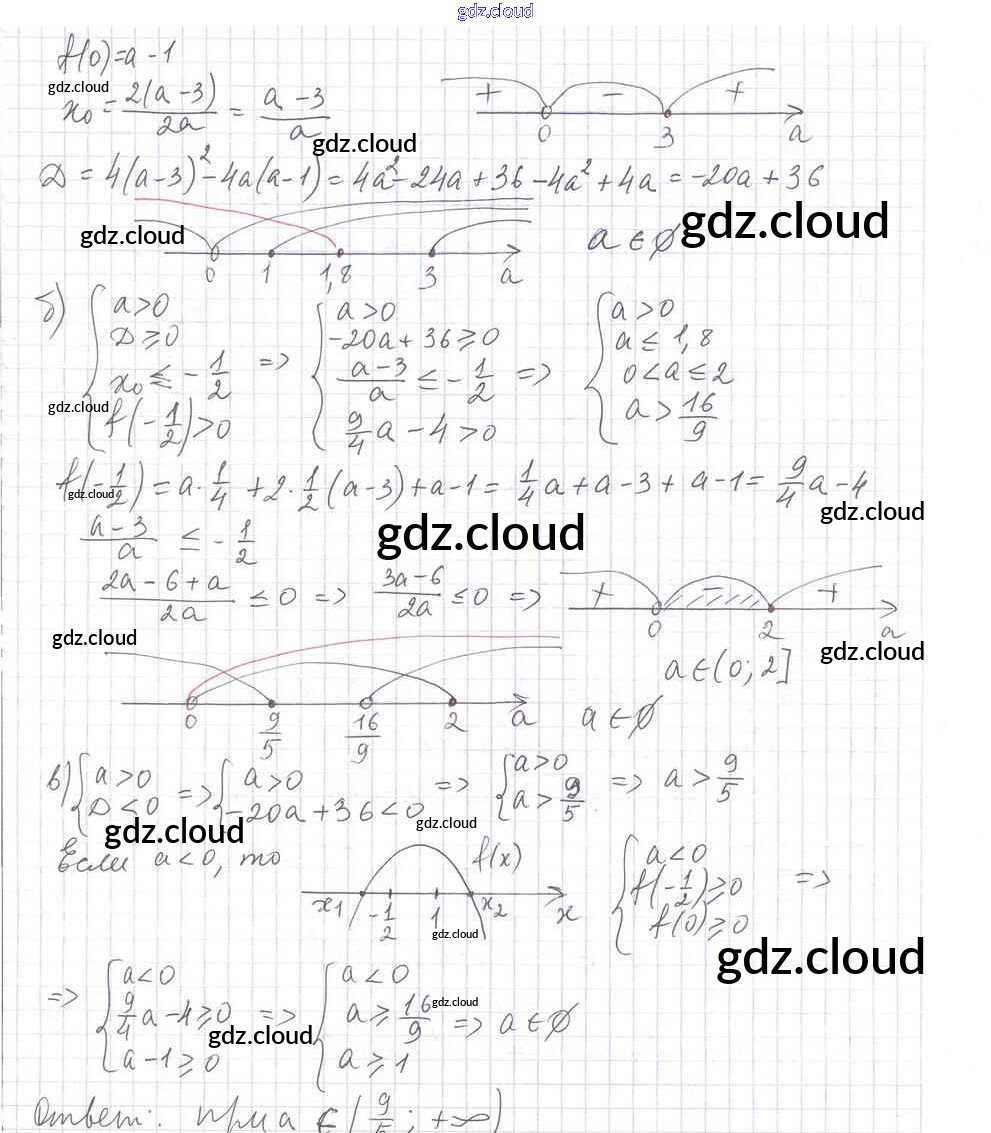 gdz.cloud
f(0)=a-1
gdz.cloud
x₀ = 2(a-3)/2a = a-3/a
+ - +
0 3 a
gdz.cloud
D = 4(a-3)² - 4a(a-1) = 4a² - 24a + 36 - 4a² + 4a = -20a + 36
gdz.cloud
gdz.cloud
0 1 1,8 3 a
a ∈ ∅
б) { a>0 D⩾0 x₀ ⩽ -1/2 f(-1/2)>0 => { a>0 -20a+36⩾0 a-3/a ≤ -1/2 9/4a-4>0 => { a>0 a≤1,8 0<a≤2 a>16/9
gdz.cloud
f(-1/2) = a·1/4 + 2·1/2(a-3)+a-1 = 1/4a+a-3+a-1 = 9/4a-4
gdz.cloud
gdz.cloud
a-3/a ≤ -1/2
gdz.cloud
2a-6+a/2a ≤ 0 => 3a-6/2a ≤ 0 =>
+ - +
0 2 a
gdz.cloud
gdz.cloud
a∈(0; 2]
0 9/5 16/9 2 a
a ∈ ∅
в) { a>0 D<0 => { a>0 -20a+36<0 => { a>0 a>9/5 => a>9/5
gdz.cloud
gdz.cloud
Если a<0, то
f(x)
x₁ -1/2 1 x₂ x
gdz.cloud
{ a<0 f(-1/2)⩾0 f(0)⩾0 =>
gdz.cloud
=> { a<0 9/4a-4⩾0 a-1⩾0 => { a<0 a⩾16/9 a⩾1 => a∈∅
gdz.cloud
gdz.cloud
Ответ: при a ∈ (9/5; +∞)